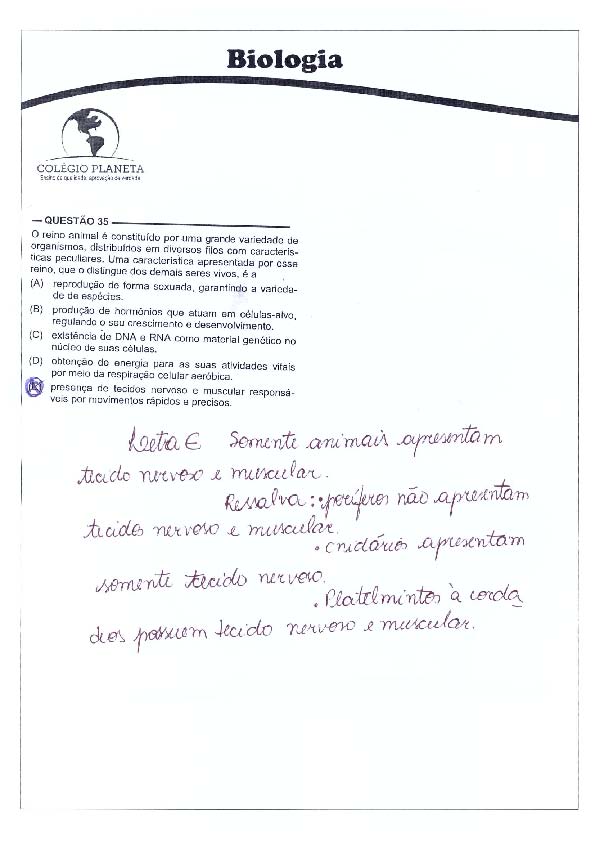 Biologia
COLÉGIO PLANETA
Ensino de qualidade, aprovação de verdade
QUESTÃO 35
O reino animal é constituído por uma grande variedade de
organismos, distribuídos em diversos filos com caracterís-
ticas peculiares. Uma característica apresentada por esse
reino, que o distingue dos demais seres vivos, é a
(A) reprodução de forma sexuada, garantindo a varieda-
de de espécies.
(B) produção de hormônios que atuam em células-alvo,
regulando o seu crescimento e desenvolvimento.
(C) existência de DNA e RNA como material genético no
núcleo de suas células.
(D) obtenção de energia para as suas atividades vitais
por meio da respiração celular aeróbica.
(E) presença de tecidos nervoso e muscular responsá-
veis por movimentos rápidos e precisos.
Letra E Somente animais apresentam
tecido nervoso e muscular.
Ressalva: • poríferos não apresentam
tecidos nervoso e muscular.
• cnidários apresentam
somente tecido nervoso.
• Platelmintos à corda
dos possuem tecido nervoso e muscular.